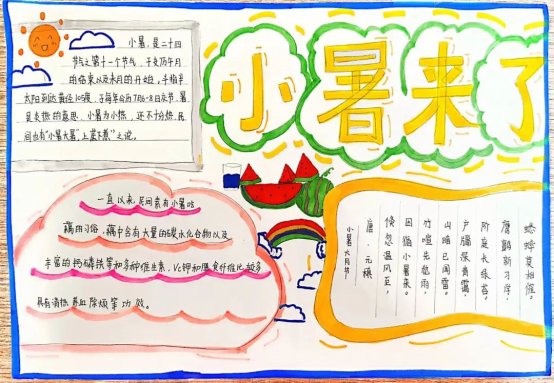 小暑来了
小暑,是二十四
节气之第十一个节气,干支历午月
的结束以及未月的开始。斗指辛
太阳到达黄经105度,于每年公历7月6-8日交节,暑
是炎热的意思,小暑为小热,还不十分热。民
间也有“小暑大暑,上蒸下煮”之说。
一直以来,民间素有小暑吃
藕的习俗,藕中含有大量的碳水化合物以及
丰富的钙磷铁等和多种维生素,Vc钾和膳食纤维比较多
具有清热养血除烦等功效。
小暑六月节
唐·元稹
倏忽温风至,
因循小暑来。
竹喧先觉雨,
山暗已闻雷。
户牖深青霭,
阶庭长绿苔。
鹰鹯新习学,
蟋蟀莫相催。